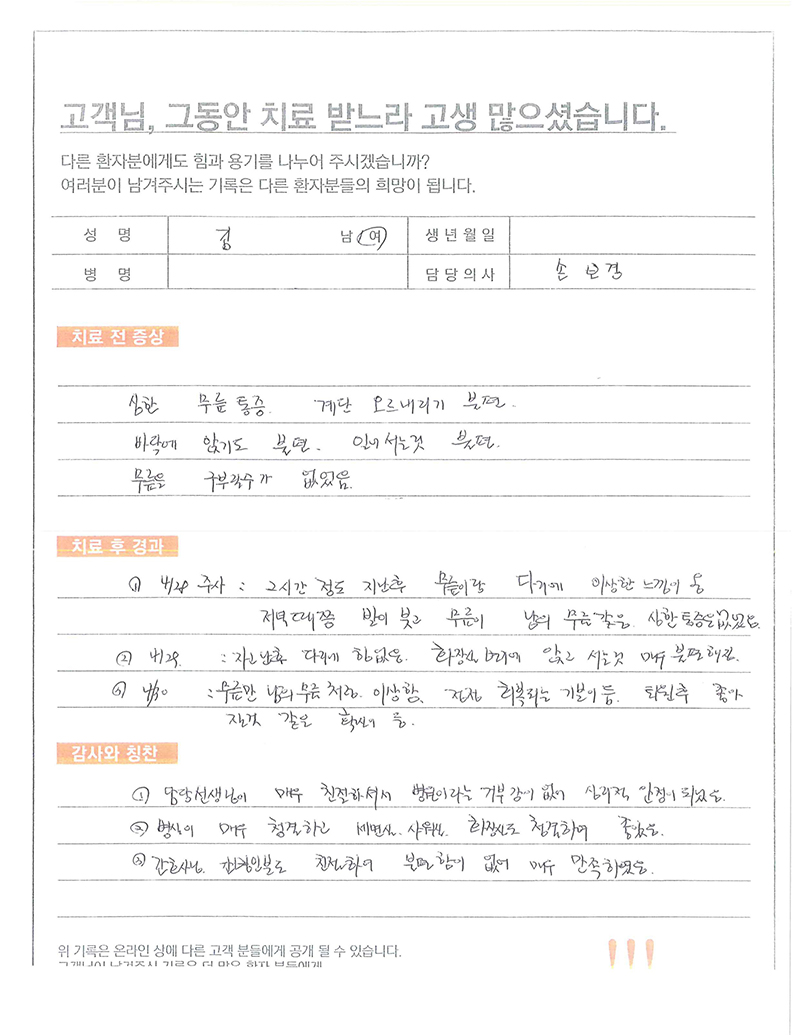 고객님, 그동안 치료 받느라 고생 많으셨습니다.
다른 환자분에게도 힘과 용기를 나누어 주시겠습니까?
여러분이 남겨주시는 기록은 다른 환자분들의 희망이 됩니다.
성 명 김 남 여 생년월일
병 명 담당의사 손보경
치료 전 증상
심한 무릎 통증. 계단 오르내리기 불편.
바닥에 앉기도 불편. 일어서는것 불편.
무릎을 구부릴수가 없었음.
치료 후 경과
① 4/28 주사 : 2시간 정도 지난후 무릎이랑 다리에 이상한 느낌이 옴
저녁때쯤 발이 붓고 무릎이 남의 무릎 같음. 심한 통증은 없었음.
② 4/29. : 자고난후 다리에 힘없음. 화장실 변기에 앉고 서는것 매우 불편해짐.
③ 4/30 : 무릎만 남의 무릎 처럼 이상함. 점점 회복되는 기분이 듬. 퇴원후 좋아
질것 같은 확신이 듬.
감사와 칭찬
① 담당선생님이 매우 친절하셔서 병원이라는 거부감이 없어 심리적 안정이 되었음.
② 병실이 매우 청결하고 세면실. 샤워실. 화장실도 청결하여 좋았음.
③ 간호사님. 친절하여 불편함이 없어 매우 만족하였음.
위 기록은 온라인 상에 다른 고객 분들에게 공개 될 수 있습니다.